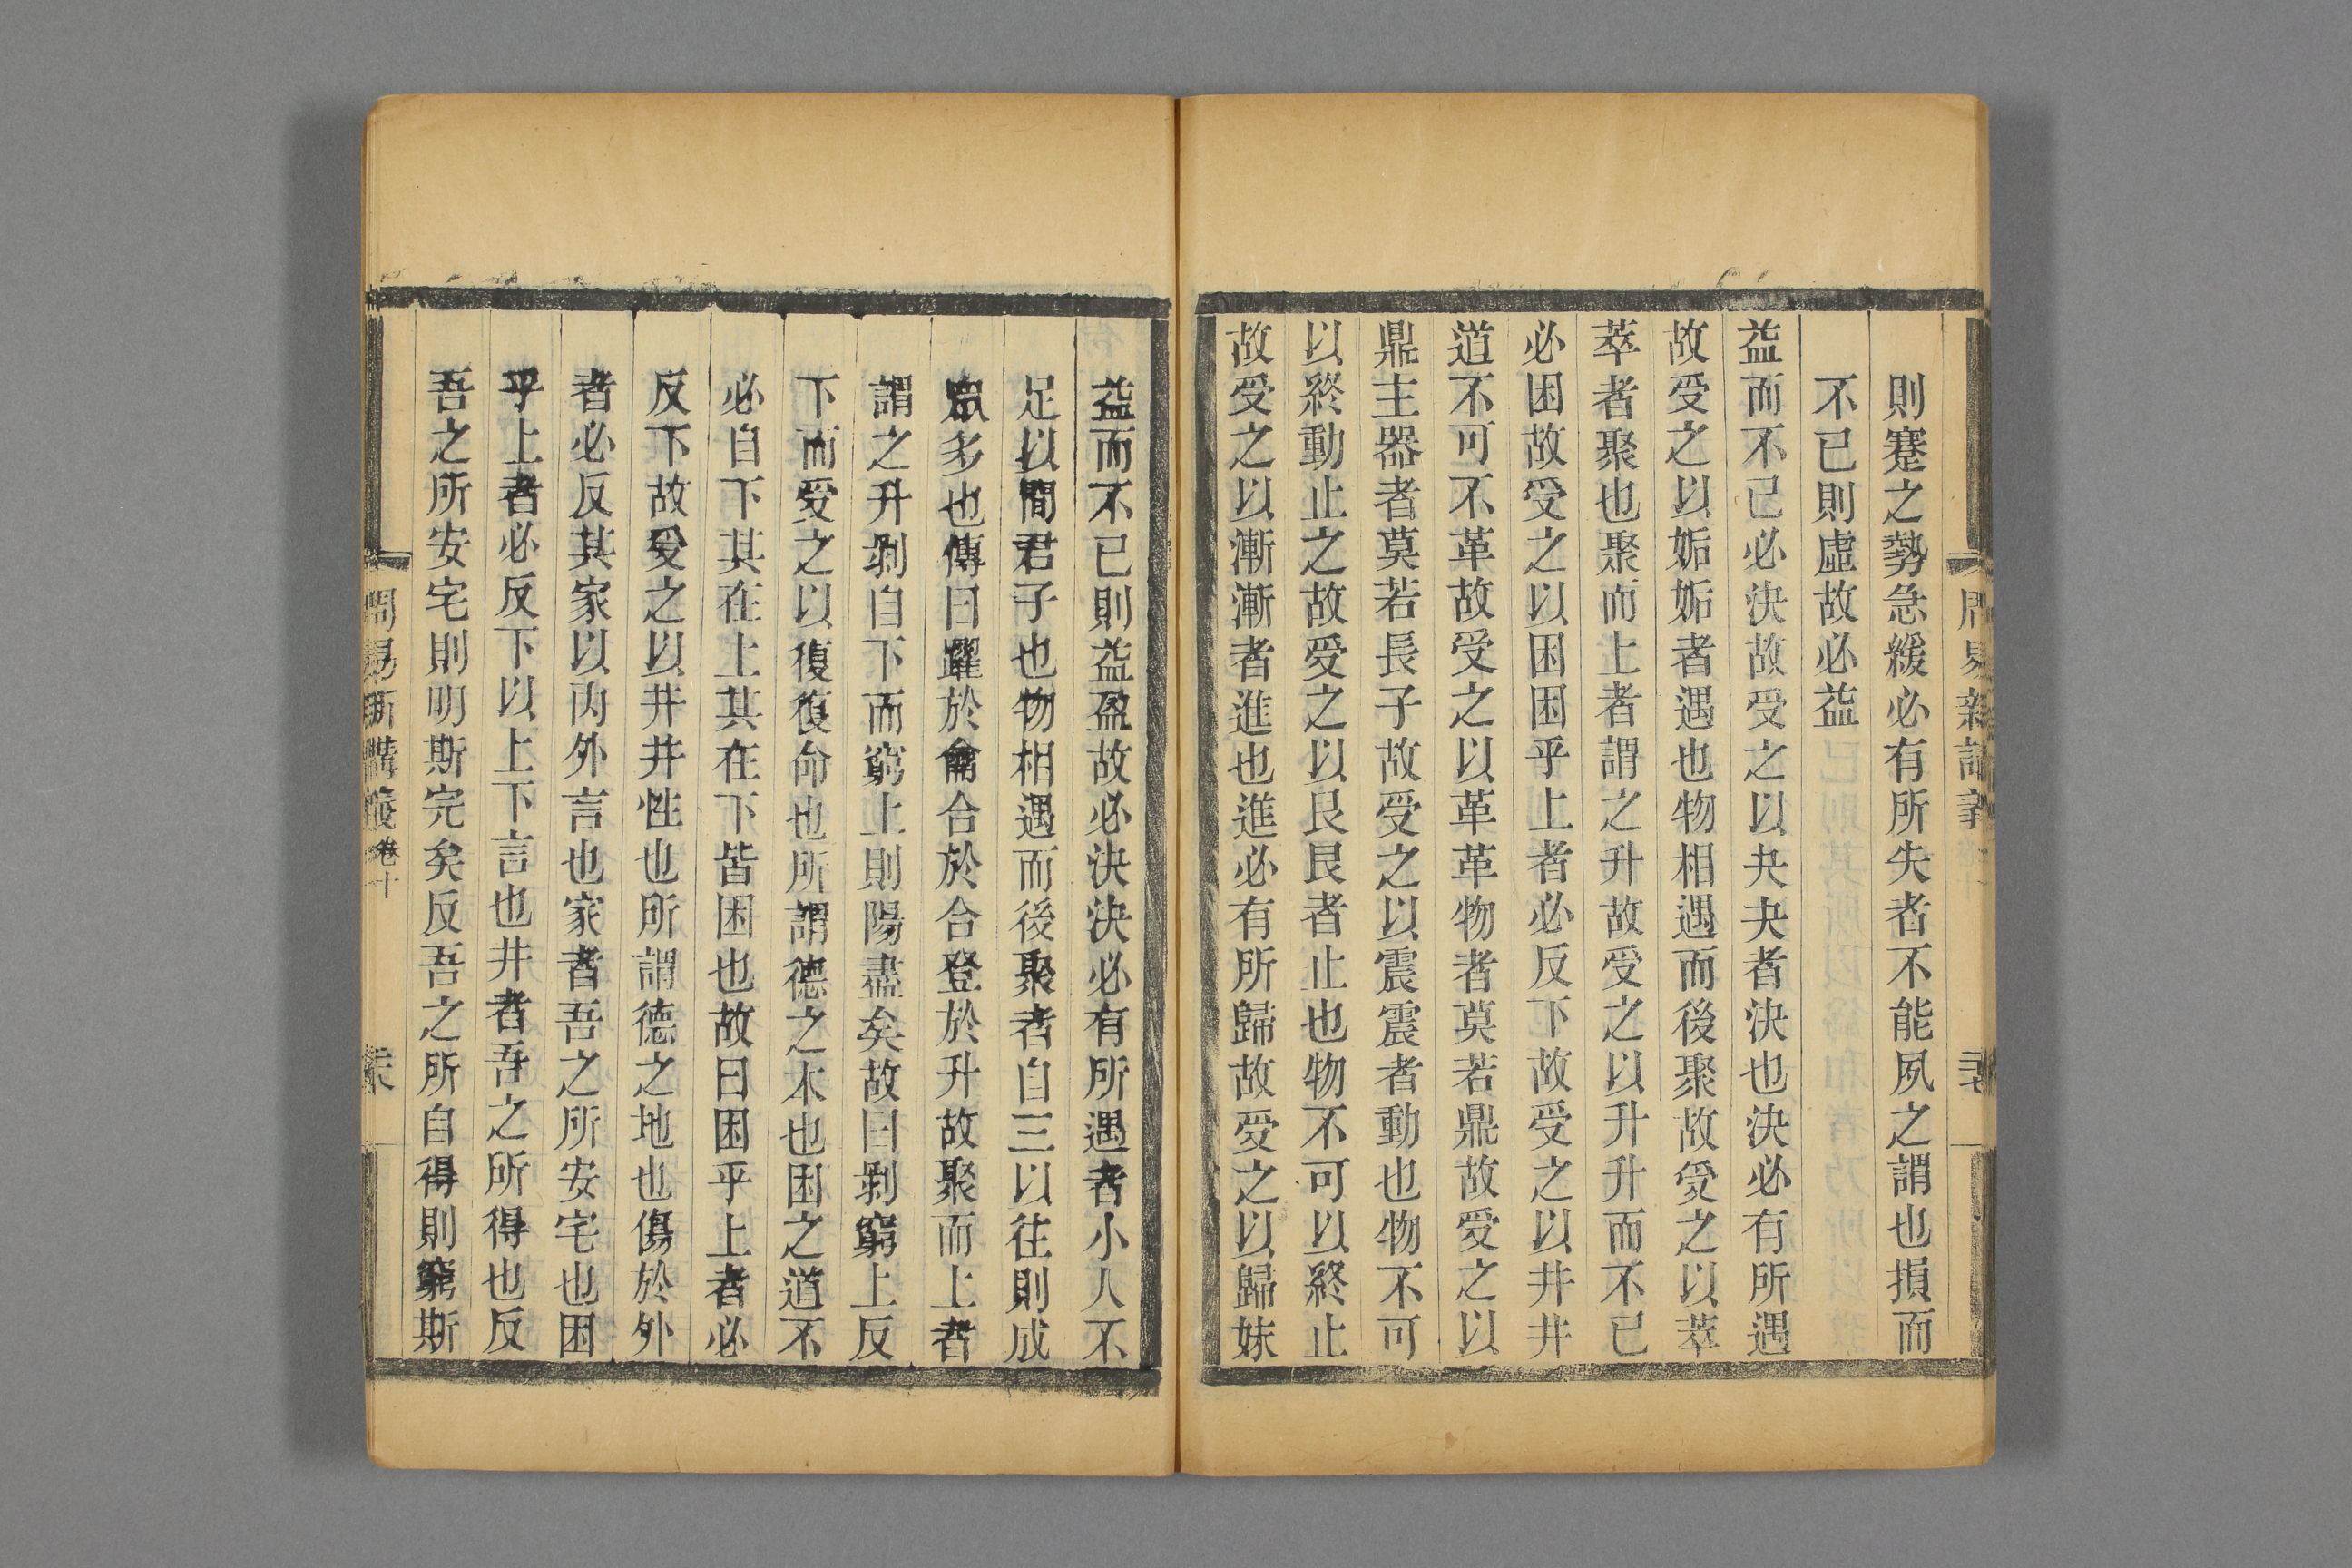 則蹇之勢急緩必有所失者不能夙之謂也損而
不已則虛故必益
益而不已必決故受之以夬夬者決也決必有所遇
故受之以姤姤者遇也物相遇而後聚故受之以萃
萃者聚也聚而上者謂之升故受之以升升而不已
必困故受之以困困乎上者必反下故受之以井井
道不可不革故受之以革革物者莫若鼎故受之以
鼎主器者莫若長子故受之以震震者動也物不可
以終動止之故受之以艮艮者止也物不可以終止
故受之以漸漸者進也進必有所歸故受之以歸妹
益而不已則益盈故必決決必有所遇者小人不
足以間君子也物相遇而後聚者自三以往則成
眾多也傳曰躍於龠合於合登於升故聚而上者
謂之升剝自下而窮上則陽盡矣故曰剝窮上反
下而受之以復復命也所謂德之本也困之道不
必自下其在上其在下皆困也故曰困乎上者必
反下故受之以井井性也所謂德之地也傷於外
者必反其家以内外言也家者吾之所安宅也困
乎上者必反下以上下言也井者吾之所得也反
吾之所安宅則明斯完矣反吾之所自得則窮斯
周易新講義 卷十